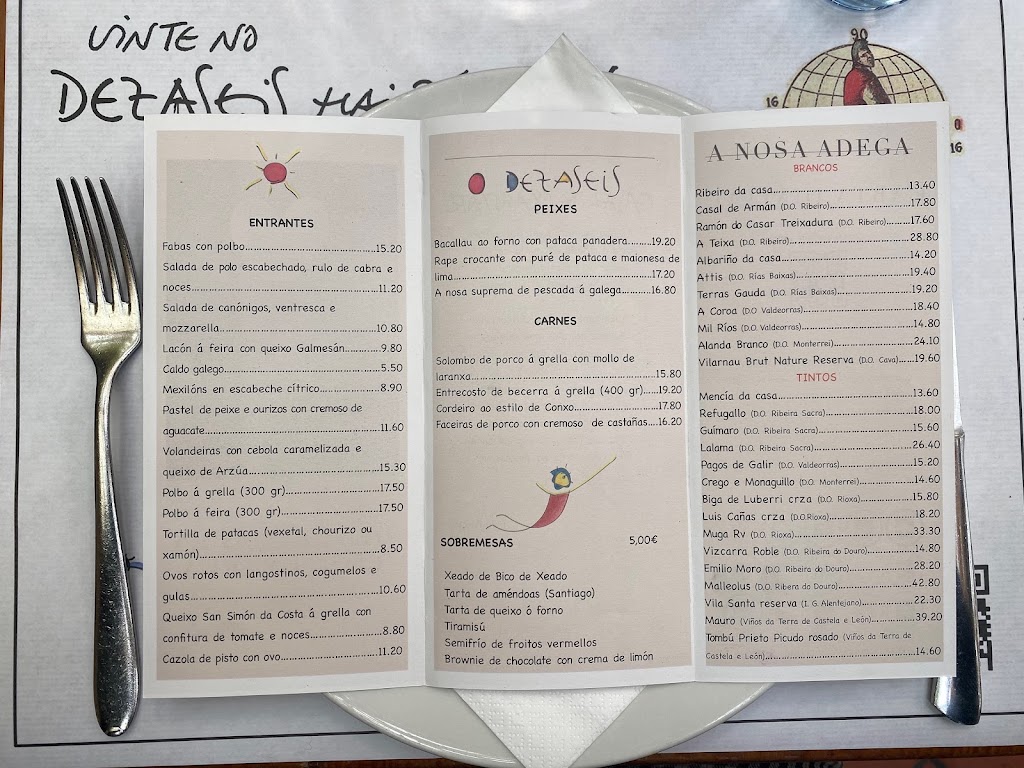 VINTE NO
DEZASEIS
90
16
0
16
ENTRANTES
Fabas con polbo.....15.20
Salada de polo escabechado, rulo de cabra e
noces.....11.20
Salada de canónigos, ventresca e
mozzarella.....10.80
Lacón á feira con queixo Galmesán.....9.80
Caldo galego.....5.50
Mexilóns en escabeche cítrico.....8.90
Pastel de peixe e ourizos con cremoso de
aguacate.....11.60
Volandeiras con cebola caramelizada e
queixo de Arzúa.....15.30
Polbo á grella (300 gr).....17.50
Polbo á feira (300 gr).....17.50
Tortilla de patacas (vexetal, chourizo ou
xamón).....8.50
Ovos rotos con langostinos, cogumelos e
gulas.....10.60
Queixo San Simón da Costa á grella con
confitura de tomate e noces.....8.80
Cazola de pisto con ovo.....11.20
O DEZASEIS
PEIXES
Bacallau ao forno con pataca panadera.....19.20
Rape crocante con puré de pataca e maionesa de
lima.....17.20
A nosa suprema de pescada á galega.....16.80
CARNES
Solombo de porco á grella con mollo de
laranxa.....15.80
Entrecosto de becerra á grella (400 gr).....19.20
Cordeiro ao estilo de Conxo.....17.80
Faceiras de porco con cremoso de castañas.....16.20
SOBREMESAS 5,00€
Xeado de Bico de Xeado
Tarta de améndoas (Santiago)
Tarta de queixo ó forno
Tiramisú
Semifrío de froitos vermellos
Brownie de chocolate con crema de limón
A NOSA ADEGA
BRANCOS
Ribeiro da casa.....13.40
Casal de Armán (D.O. Ribeiro).....17.80
Ramón do Casar Treixadura (D.O. Ribeiro).....17.60
A Teixa (D.O. Ribeiro).....28.80
Albariño da casa.....14.20
Attis (D.O. Rías Baixas).....19.40
Terras Gauda (D.O. Rías Baixas).....19.20
A Coroa (D.O Valdeorras).....18.40
Mil Ríos (D.O. Valdeorras).....14.80
Alanda Branco (D.O. Monterrei).....24.10
Vilarnau Brut Nature Reserva (D.O. Cava).....19.60
TINTOS
Mencía da casa.....13.60
Refugallo (D.O. Ribeira Sacra).....18.00
Guímaro (D.O. Ribeira Sacra).....15.60
Lalama (D.O. Ribeira Sacra).....26.40
Pagos de Galir (D.O. Valdeorras).....15.20
Crego e Monaguillo (D.O. Monterrei).....14.60
Biga de Luberri crza (D.O. Rioxa).....15.80
Luis Cañas crza (D.O.Rioxa).....18.20
Muga Rv (D.O. Rioxa).....33.30
Vizcarra Roble (D.O. Ribeira do Douro).....14.80
Emilio Moro (D.O. Ribeira do Douro).....28.20
Malleolus (D.O. Ribera do Douro).....42.80
Vila Santa reserva (I. G. Alentejano).....22.30
Mauro (Viños da Terra de Castela e León).....39.20
Tombú Prieto Picudo rosado (Viños da Terra de
Castela e León).....14.60